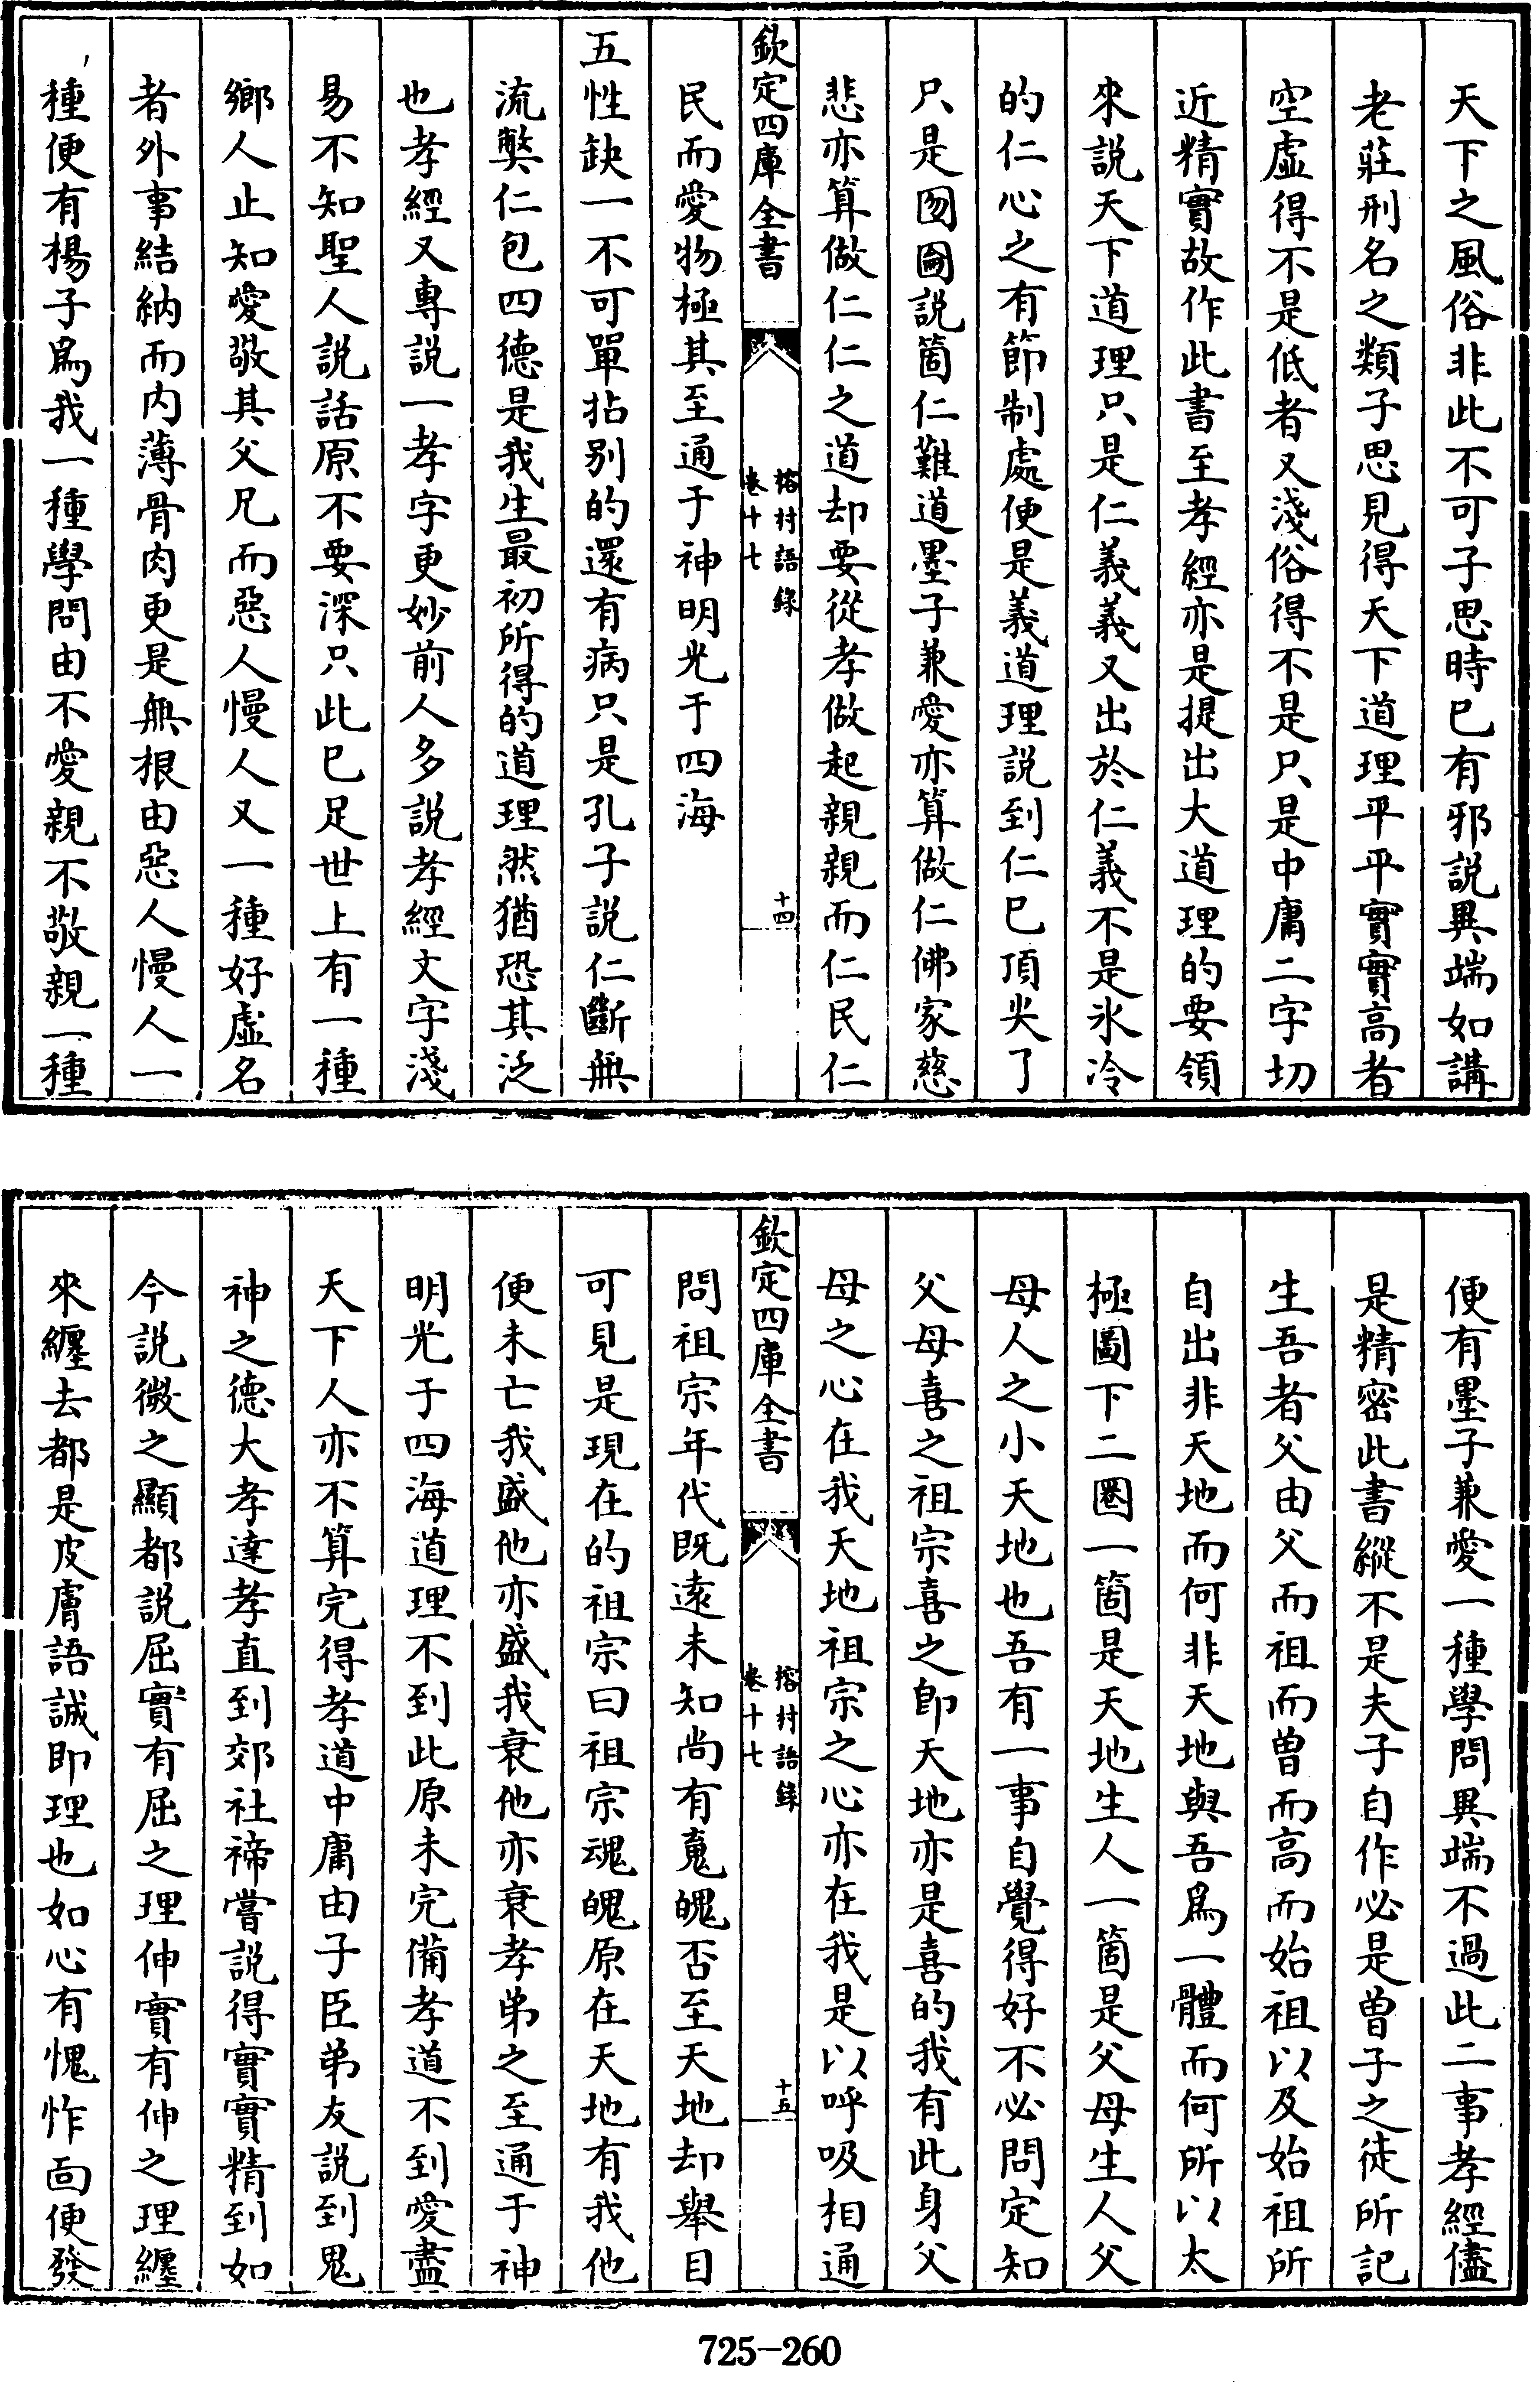 天下之風俗非此不可子思時已有邪說異端如講
老莊刑名之類子思見得天下道理平平實實高者
空虛得不是低者又淺俗得不是只是中庸二字切
近精實故作此書至孝經亦是提出大道理的要領
來說天下道理只是仁義義又出於仁義不是氷冷
的仁心之有節制處便是義道理說到仁已頂尖了
只是囫圇說箇仁難道墨子兼愛亦算做仁佛家慈
悲亦算做仁仁之道却要從孝做起親親而仁民仁
欽定四庫全書
榕村語錄
卷十七
十四
民而愛物極其至通于神明光于四海
五性缺一不可單拈别的還有病只是孔子說仁斷無
流弊仁包四德是我生最初所得的道理然猶恐其泛
也孝經又專說一孝字更妙前人多說孝經文字淺
易不知聖人說話原不要深只此已足世上有一種
鄉人止知愛敬其父兄而惡人慢人又一種好虛名
者外事結納而内薄骨肉更是無根由惡人慢人一
種便有楊子爲我一種學問由不愛親不敬親一種
便有墨子兼愛一種學問異端不過此二事孝經儘
是精密此書縱不是夫子自作必是曽子之徒所記
生吾者父由父而祖而曽而高而始祖以及始祖所
自出非天地而何非天地與吾爲一體而何所以太
極圖下二圏一箇是天地生人一箇是父母生人父
母人之小天地也吾有一事自覺得好不必問定知
父母喜之祖宗喜之即天地亦是喜的我有此身父
母之心在我天地祖宗之心亦在我是以呼吸相通
欽定四庫全書
榕村語錄
卷十七
十五
問祖宗年代既遠未知尚有䰟魄否至天地却舉目
可見是現在的祖宗曰祖宗魂魄原在天地有我他
便未亡我盛他亦盛我衰他亦衰孝弟之至通于神
明光于四海道理不到此原未完備孝道不到愛盡
天下人亦不算完得孝道中庸由子臣弟友說到鬼
神之德大孝達孝直到郊社禘嘗說得實實精到如
今說微之顯都說屈實有屈之理伸實有伸之理纏
來纏去都是皮膚語誠即理也如心有愧怍面便發
725-260